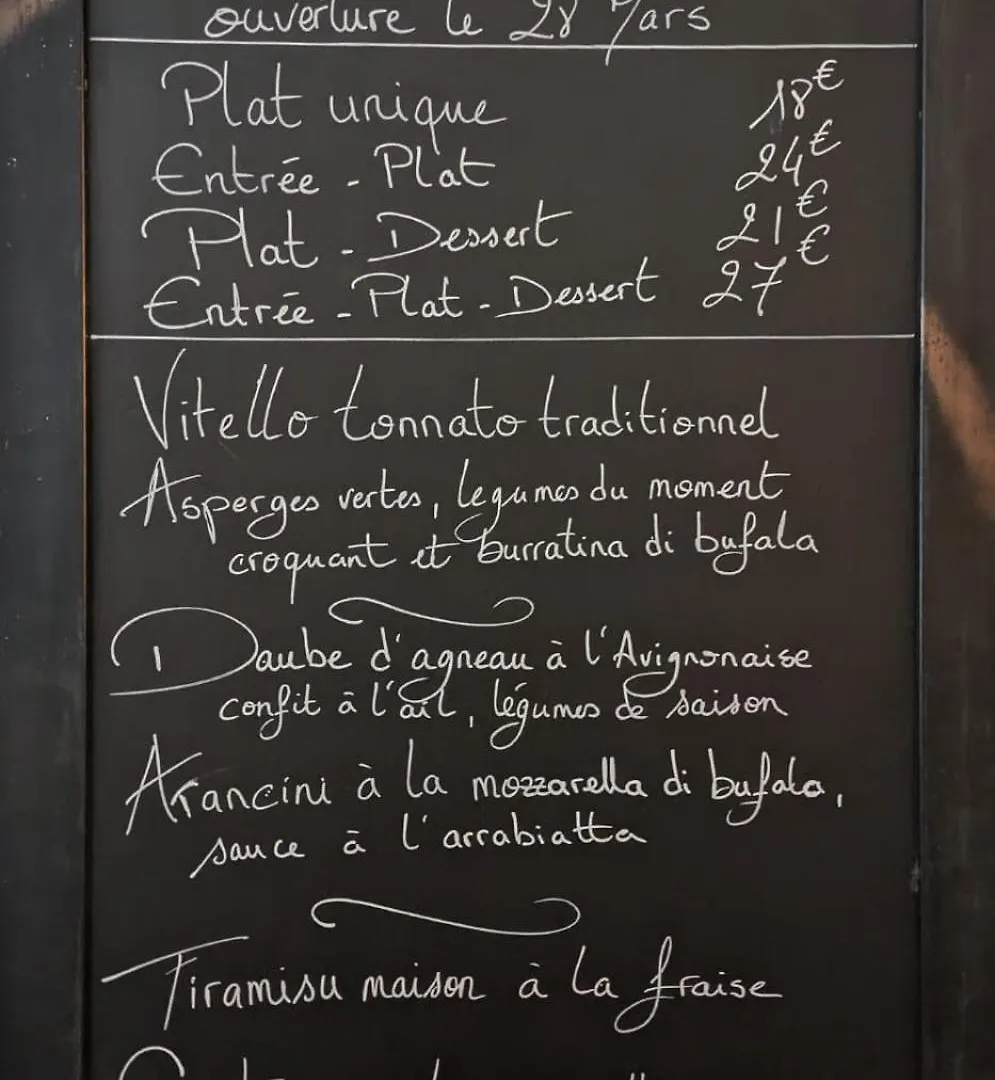 ouverture le 28 Mars
Plat unique 18€
Entrée - Plat 24€
Plat - Dessert 21€
Entrée - Plat - Dessert 27€
Vitello tonnato traditionnel
Asperges vertes, legumes du moment
croquant et burratina di bufala
Daube d'agneau à l'Avignonaise
confit à l'ail, légumes de saison
Arancini à la mozzarella di bufala,
sauce à l'arrabiatta
Tiramisu maison à la fraise